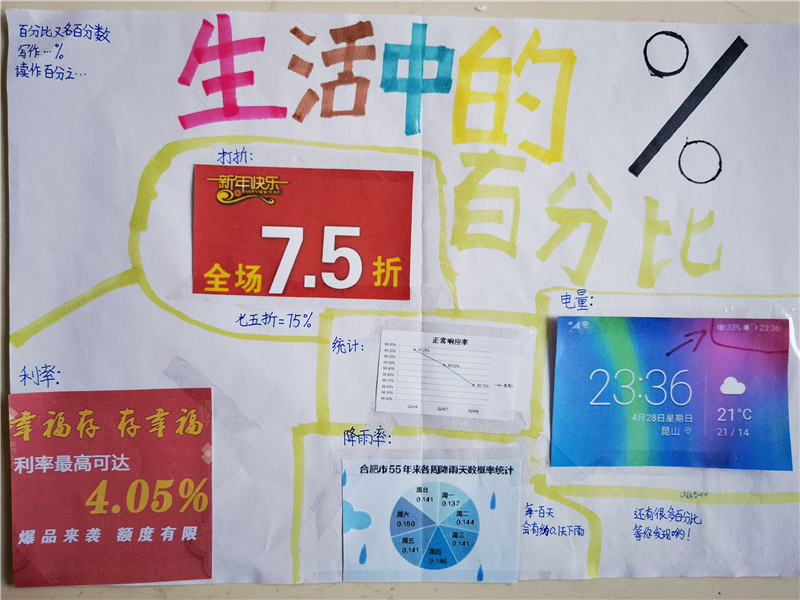 百分比又名百分数
写作…%
读作百分之…
生活中的
%
百分比
打折:
新年快乐
全场7.5折
七五折=75%
统计:
正常响应率
电量:
33% 23:36
23:36
4月28日星期日
昆山
21°C
21 / 14
利率:
幸福存 存幸福
利率最高可达
4.05%
爆品来袭 额度有限
降雨率:
合肥市55年来各周降雨天数概率统计
周日
0.141
周一
0.137
周二
0.144
周三
0.141
周四
0.146
周五
0.141
周六
0.150
每一百天
会有约
天下雨
还有很多百分比
等你发现哟!